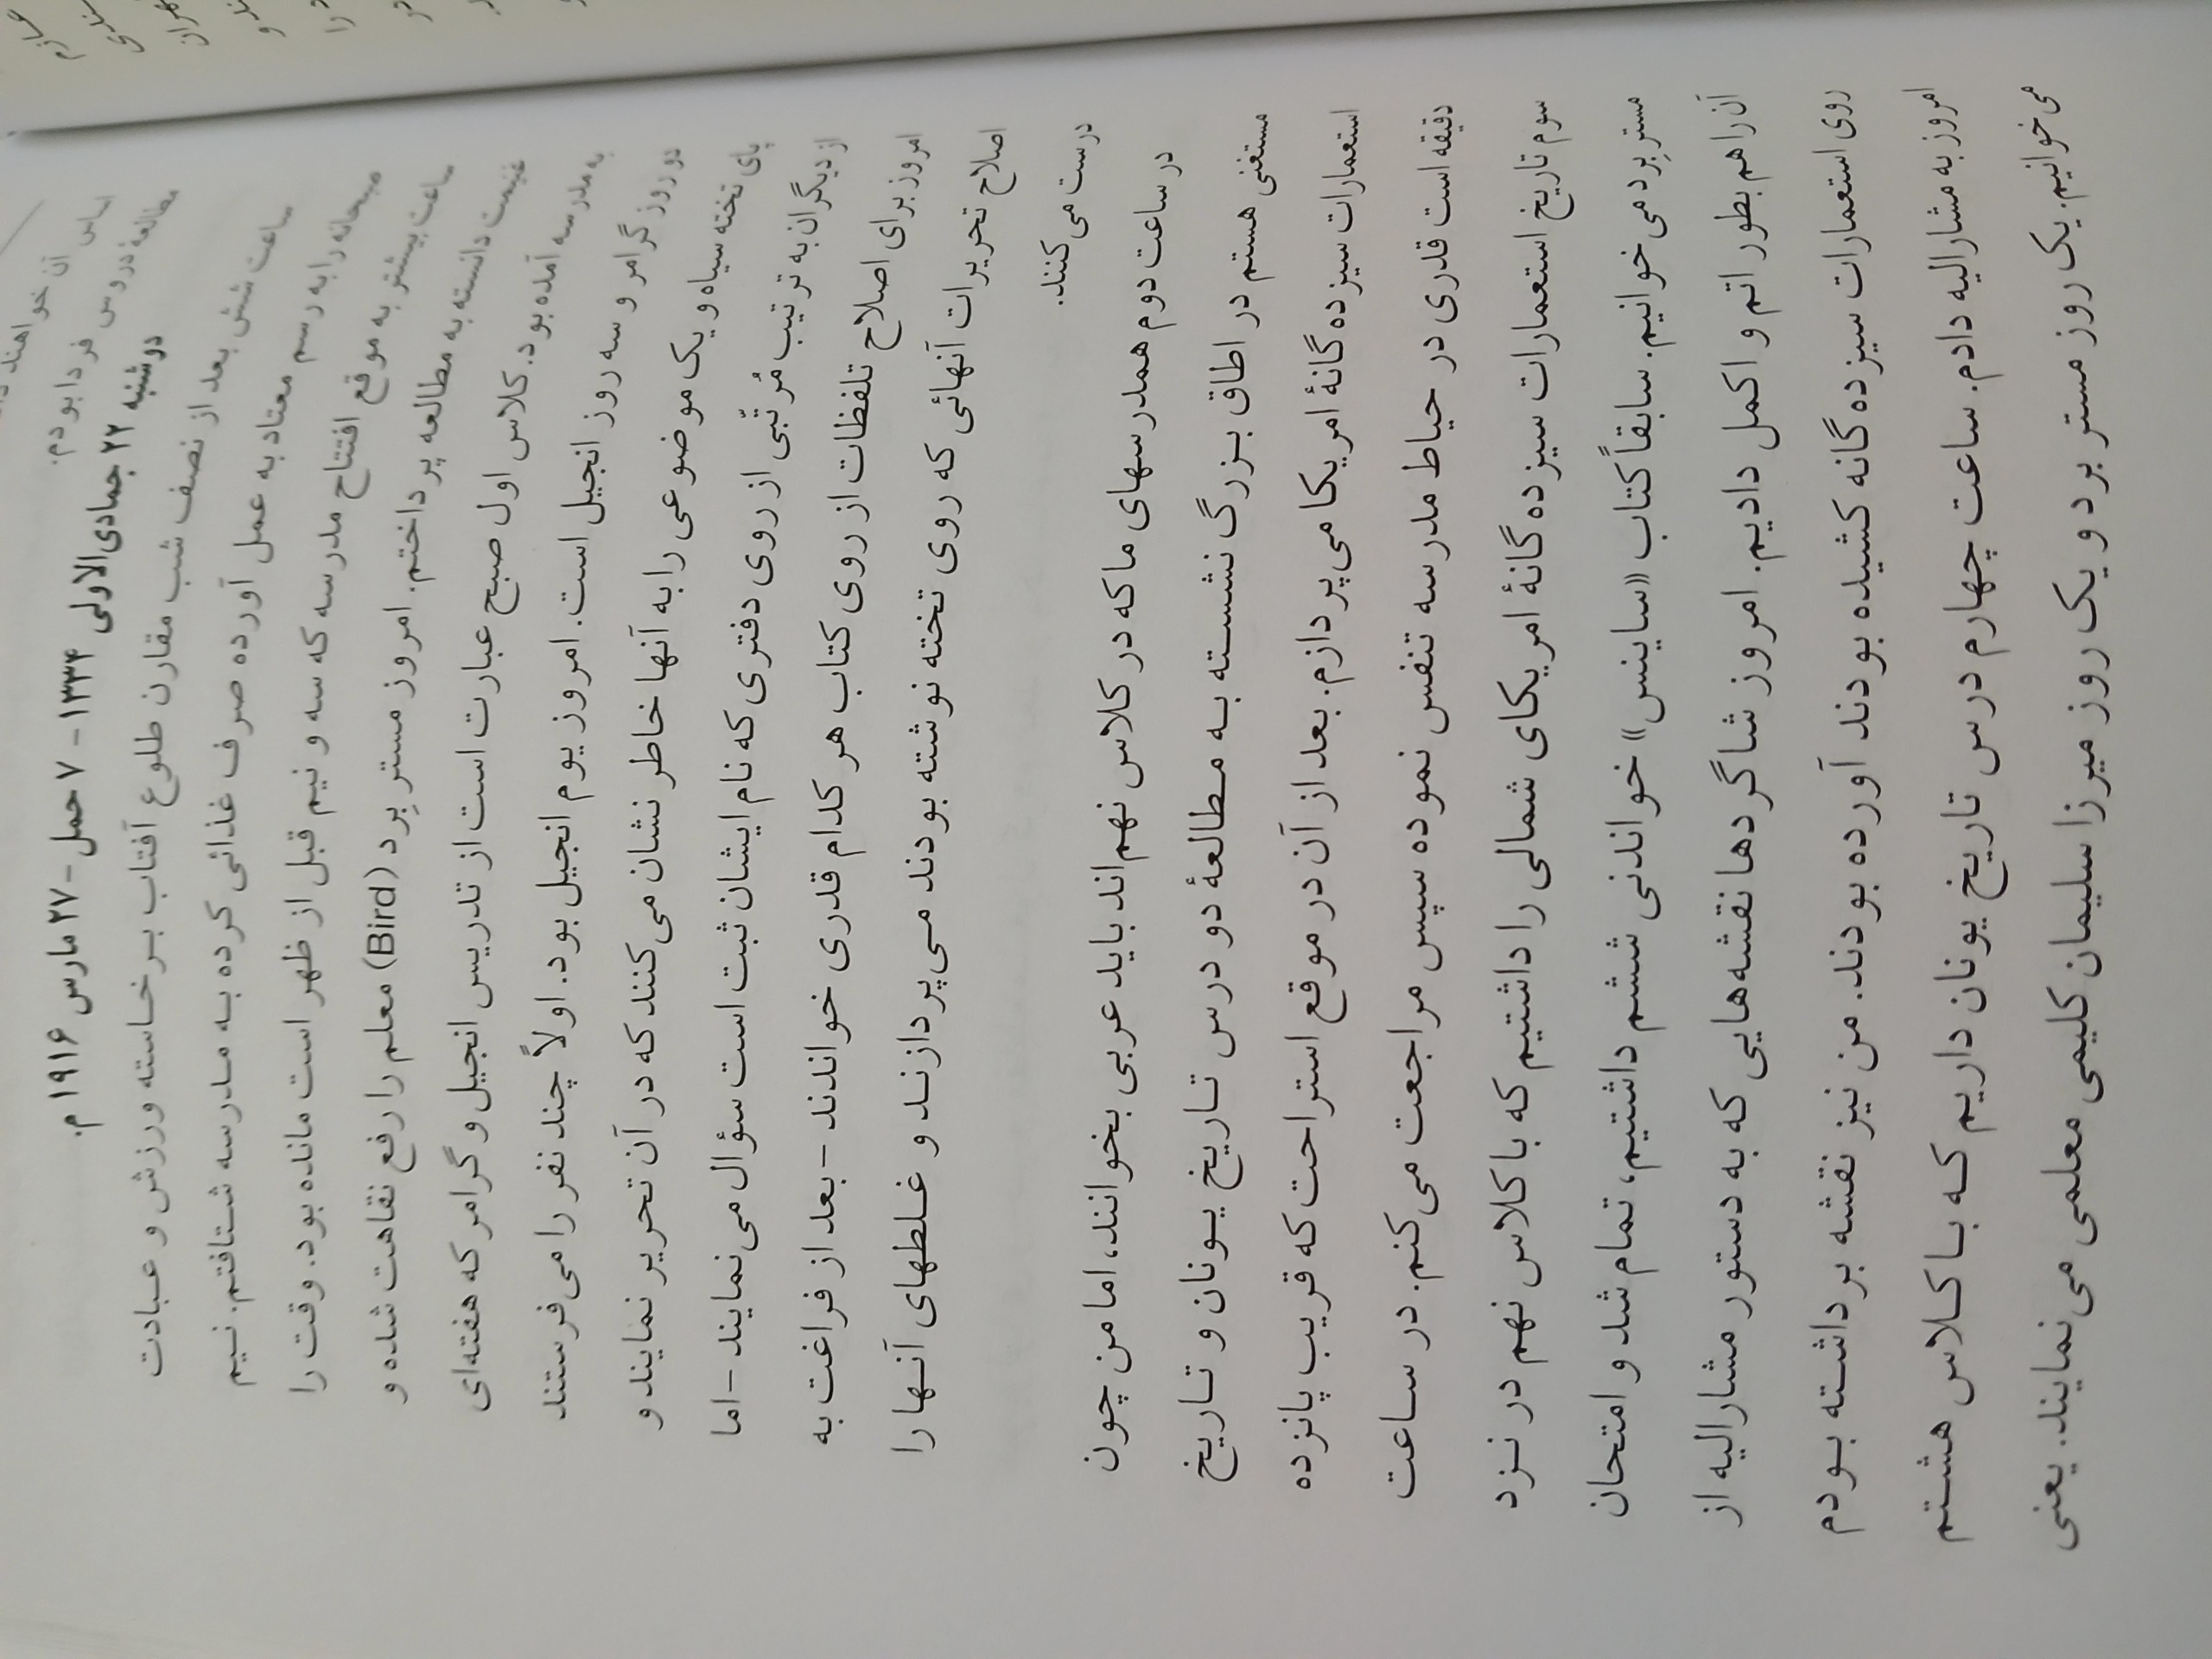 اساس آن خواهند
مطالعهٔ دروس فردا بودم.
دوشنبه ۲۲ جمادی‌الاولی ۱۳۳۴ - ۷ حمل - ۲۷ مارس ۱۹۱۶ م.
ساعت شش بعد از نصف شب مقارن طلوع آفتاب برخاسته ورزش و عبادت
صبحانه را به رسم معتاد به عمل آورده صرف غذائی کرده به مدرسه شتافتم. نیم
ساعت بیشتر به موقع افتتاح مدرسه که سه و نیم قبل از ظهر است مانده بود. وقت را
غنیمت دانسته به مطالعه پرداختم. امروز مستر بِرد (Bird) معلم را رفع نقاهت شده و
به مدرسه آمده بود. کلاس اول صبح عبارت است از تدریس انجیل و گرامر که هفته‌ای
دو روز گرامر و سه روز انجیل است. امروز یوم انجیل بود. اولاً چند نفر را می‌فرستند
پای تخته سیاه و یک موضوعی را به آنها خاطر نشان می‌کنند که در آن تحریر نمایند و
از دیگران به ترتیب مُرتّبی از روی دفتری که نام ایشان ثبت است سؤال می‌نمایند - اما
امروز برای اصلاح تلفظات از روی کتاب هر کدام قدری خواندند - بعد از فراغت به
اصلاح تحریرات آنهائی که روی تخته نوشته بودند می‌پردازند و غلطهای آنها را
درست می‌کنند.
در ساعت دوم همدرسهای ما که در کلاس نهم‌اند باید عربی بخوانند، اما من چون
مستغنی هستم در اطاق بزرگ نشسته به مطالعهٔ دو درس تاریخ یونان و تاریخ
استعمارات سیزده گانهٔ امریکا می‌پردازم. بعد از آن در موقع استراحت که قریب پانزده
دقیقه است قدری در حیاط مدرسه تنفس نموده سپس مراجعت می‌کنم. در ساعت
سوم تاریخ استعمارات سیزده گانهٔ امریکای شمالی را داشتیم که با کلاس نهم در نزد
مستر بِرد می خوانیم. سابقاً کتاب «ساینس» خواندنی ششم داشتیم، تمام شد و امتحان
آن را هم بطور اتم و اکمل دادیم. امروز شاگردها نقشه‌هایی که به دستور مشارالیه از
روی استعمارات سیزده گانه کشیده بودند آورده بودند. من نیز نقشه برداشته بودم
امروز به مشارالیه دادم. ساعت چهارم درس تاریخ یونان داریم که با کلاس هشتم
می‌خوانیم. یک روز مستر برد و یک روز میرزا سلیمان کلیمی معلمی می‌نمایند. یعنی